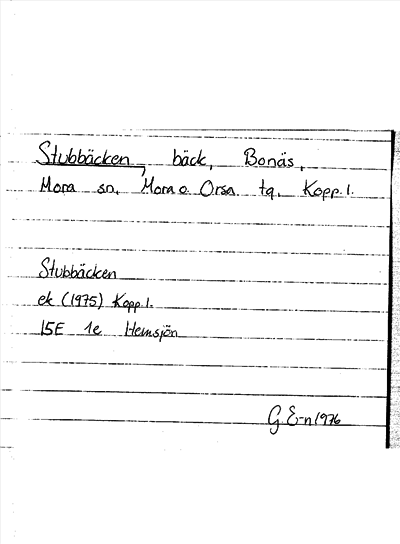 Stubbäcken, bäck, Bonäs,
Mora sn, Mora o. Orsa tg. Kopp.l.
Stubbäcken
ek (1975) Kopp.l.
15E 1e Hemsjön
G. E-n 1976